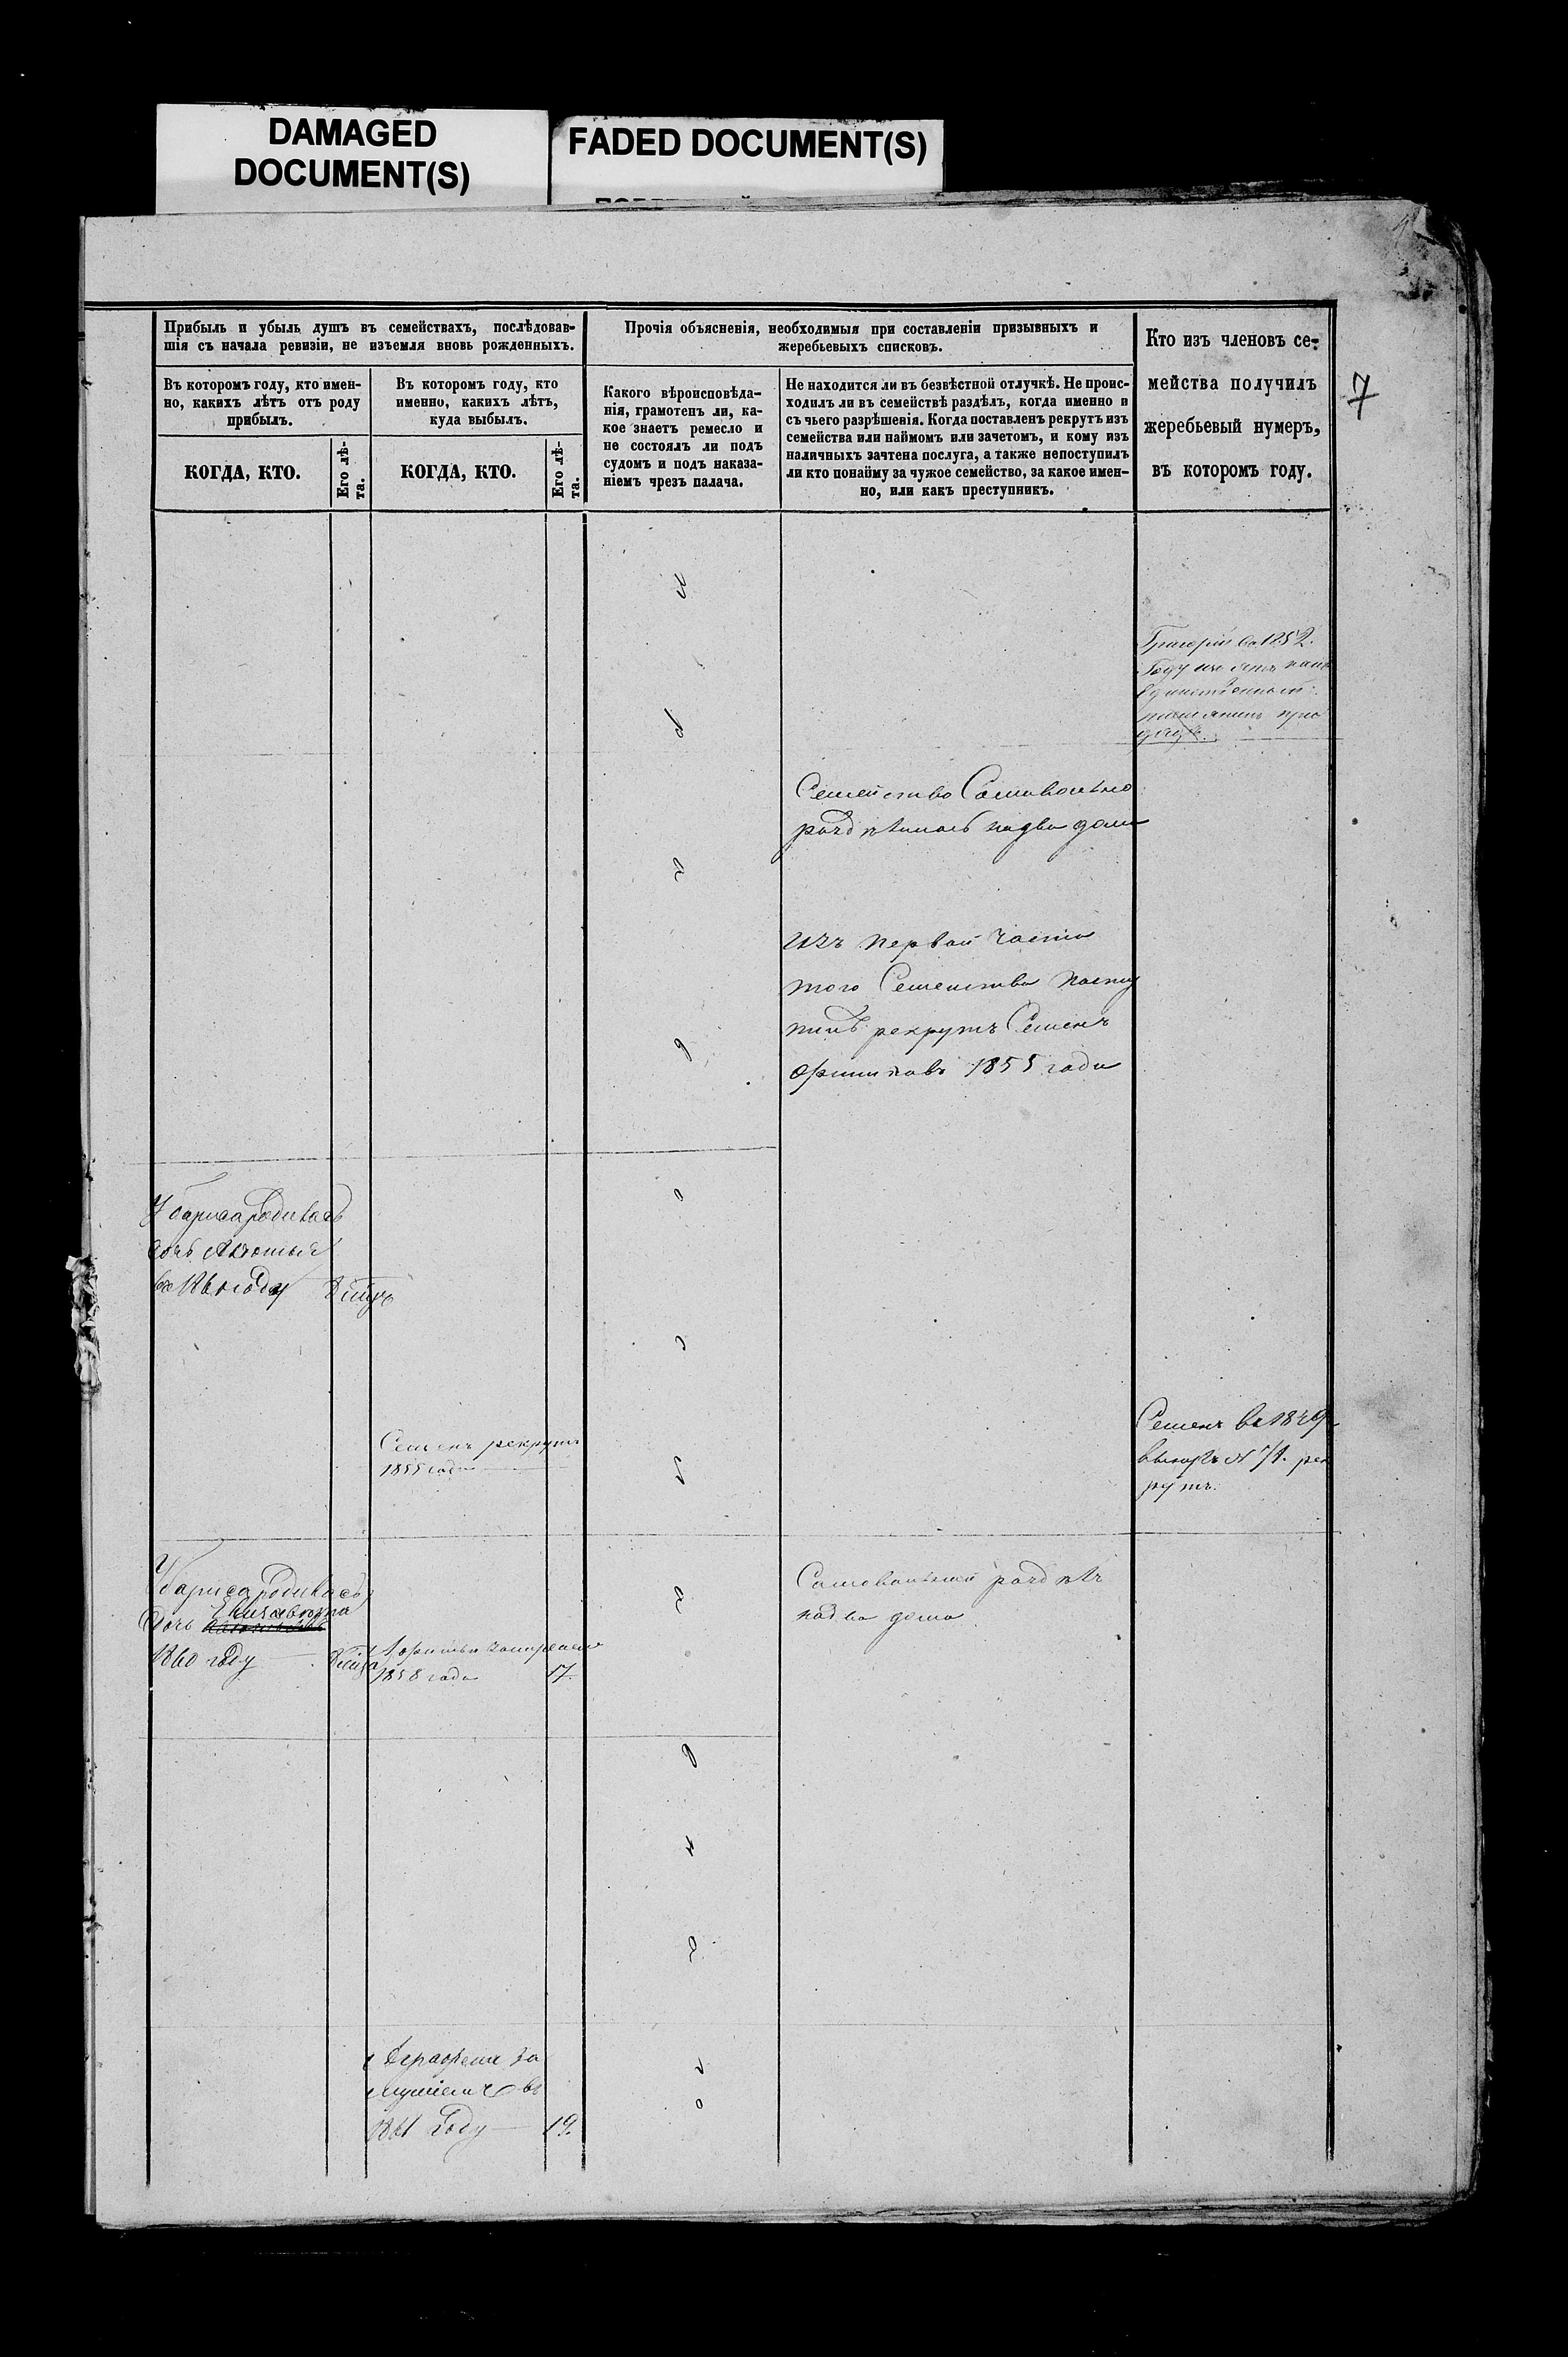 DAMAGED
DOCUMENT(S)
FADED DOCUMENT(S)
7
Прибыль и убыль душъ въ семействахъ, послѣдовав-
шія съ начала ревизіи, не изъемля вновь рожденныхъ.
Въ которомъ году, кто имен-
но, какихъ лѣтъ отъ роду
прибылъ.
КОГДА, КТО.
Его лѣ-
та.
Въ которомъ году, кто
именно, какихъ лѣтъ,
куда выбылъ.
КОГДА, КТО.
Его лѣ-
та.
Прочія объясненія, необходимыя при составленіи призывныхъ и
жеребьевыхъ списковъ.
Какого вѣроисповѣда-
нія, грамотенъ ли, ка-
кое знаетъ ремесло и
не состоялъ ли подъ
судомъ и подъ наказа-
ніемъ чрезъ палача.
Не находится ли въ безвѣстной отлучкѣ. Не проис-
ходилъ ли въ семействѣ раздѣлъ, когда именно и
съ чьего разрѣшенія. Когда поставленъ рекрутъ изъ
семейства или наймомъ или зачетомъ, и кому изъ
наличныхъ зачтена послуга, а также непоступилъ
ли кто понайму за чужое семейство, за какое имен-
но, или какъ преступникъ.
Кто изъ членовъ се-
мейства получилъ
жеребьевый нумеръ,
въ которомъ году.
Григорій въ 1852
Году
Семейство Самовольно
раздѣлилось на два дома
Изъ первой части
того Семейства посту
пилъ рекрутъ Семенъ
1855 года
У бариса родилась
дочь
году
Семенъ рекрутъ
1855 года
Семенъ въ 18
вынулъ № 71. рек
рутъ.
У бариса родилась
дочь Елизавета
1860 году
1858 года 17.
Самовольный раздѣлъ
на два дома
за
мужемъ въ
1861 году 19.